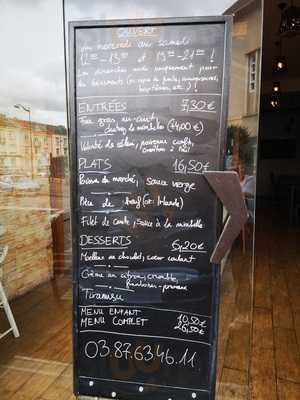 OUVERT
du mercredi au samedi
12h - 13h et 19h - 21h !
Les dimanches midi uniquement pour
les évènements (
baptêmes, etc.) !
ENTRÉES 7,30€
Foie gras mi-cuit,
chutney de mirabelles (+4,00€)
Velouté de céleri, poivrons confits,
PLATS 16,50€
Poisson du marché, sauce vierge
Pièce de bœuf (or: Irlande)
Filet de canette, sauce à la mirabelle
DESSERTS 6,20€
Moelleux au chocolat, cœur coulant
Crème au citron, crumble,
framboises
Tiramisu
MENU ENFANT 10,50€
MENU COMPLET 26,50€
03.87.63.46.11